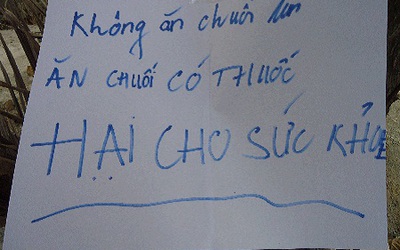 Không ăn chuối
ĂN CHUỐI CÓ THUỐC
HẠI CHO SỨC KHỎE